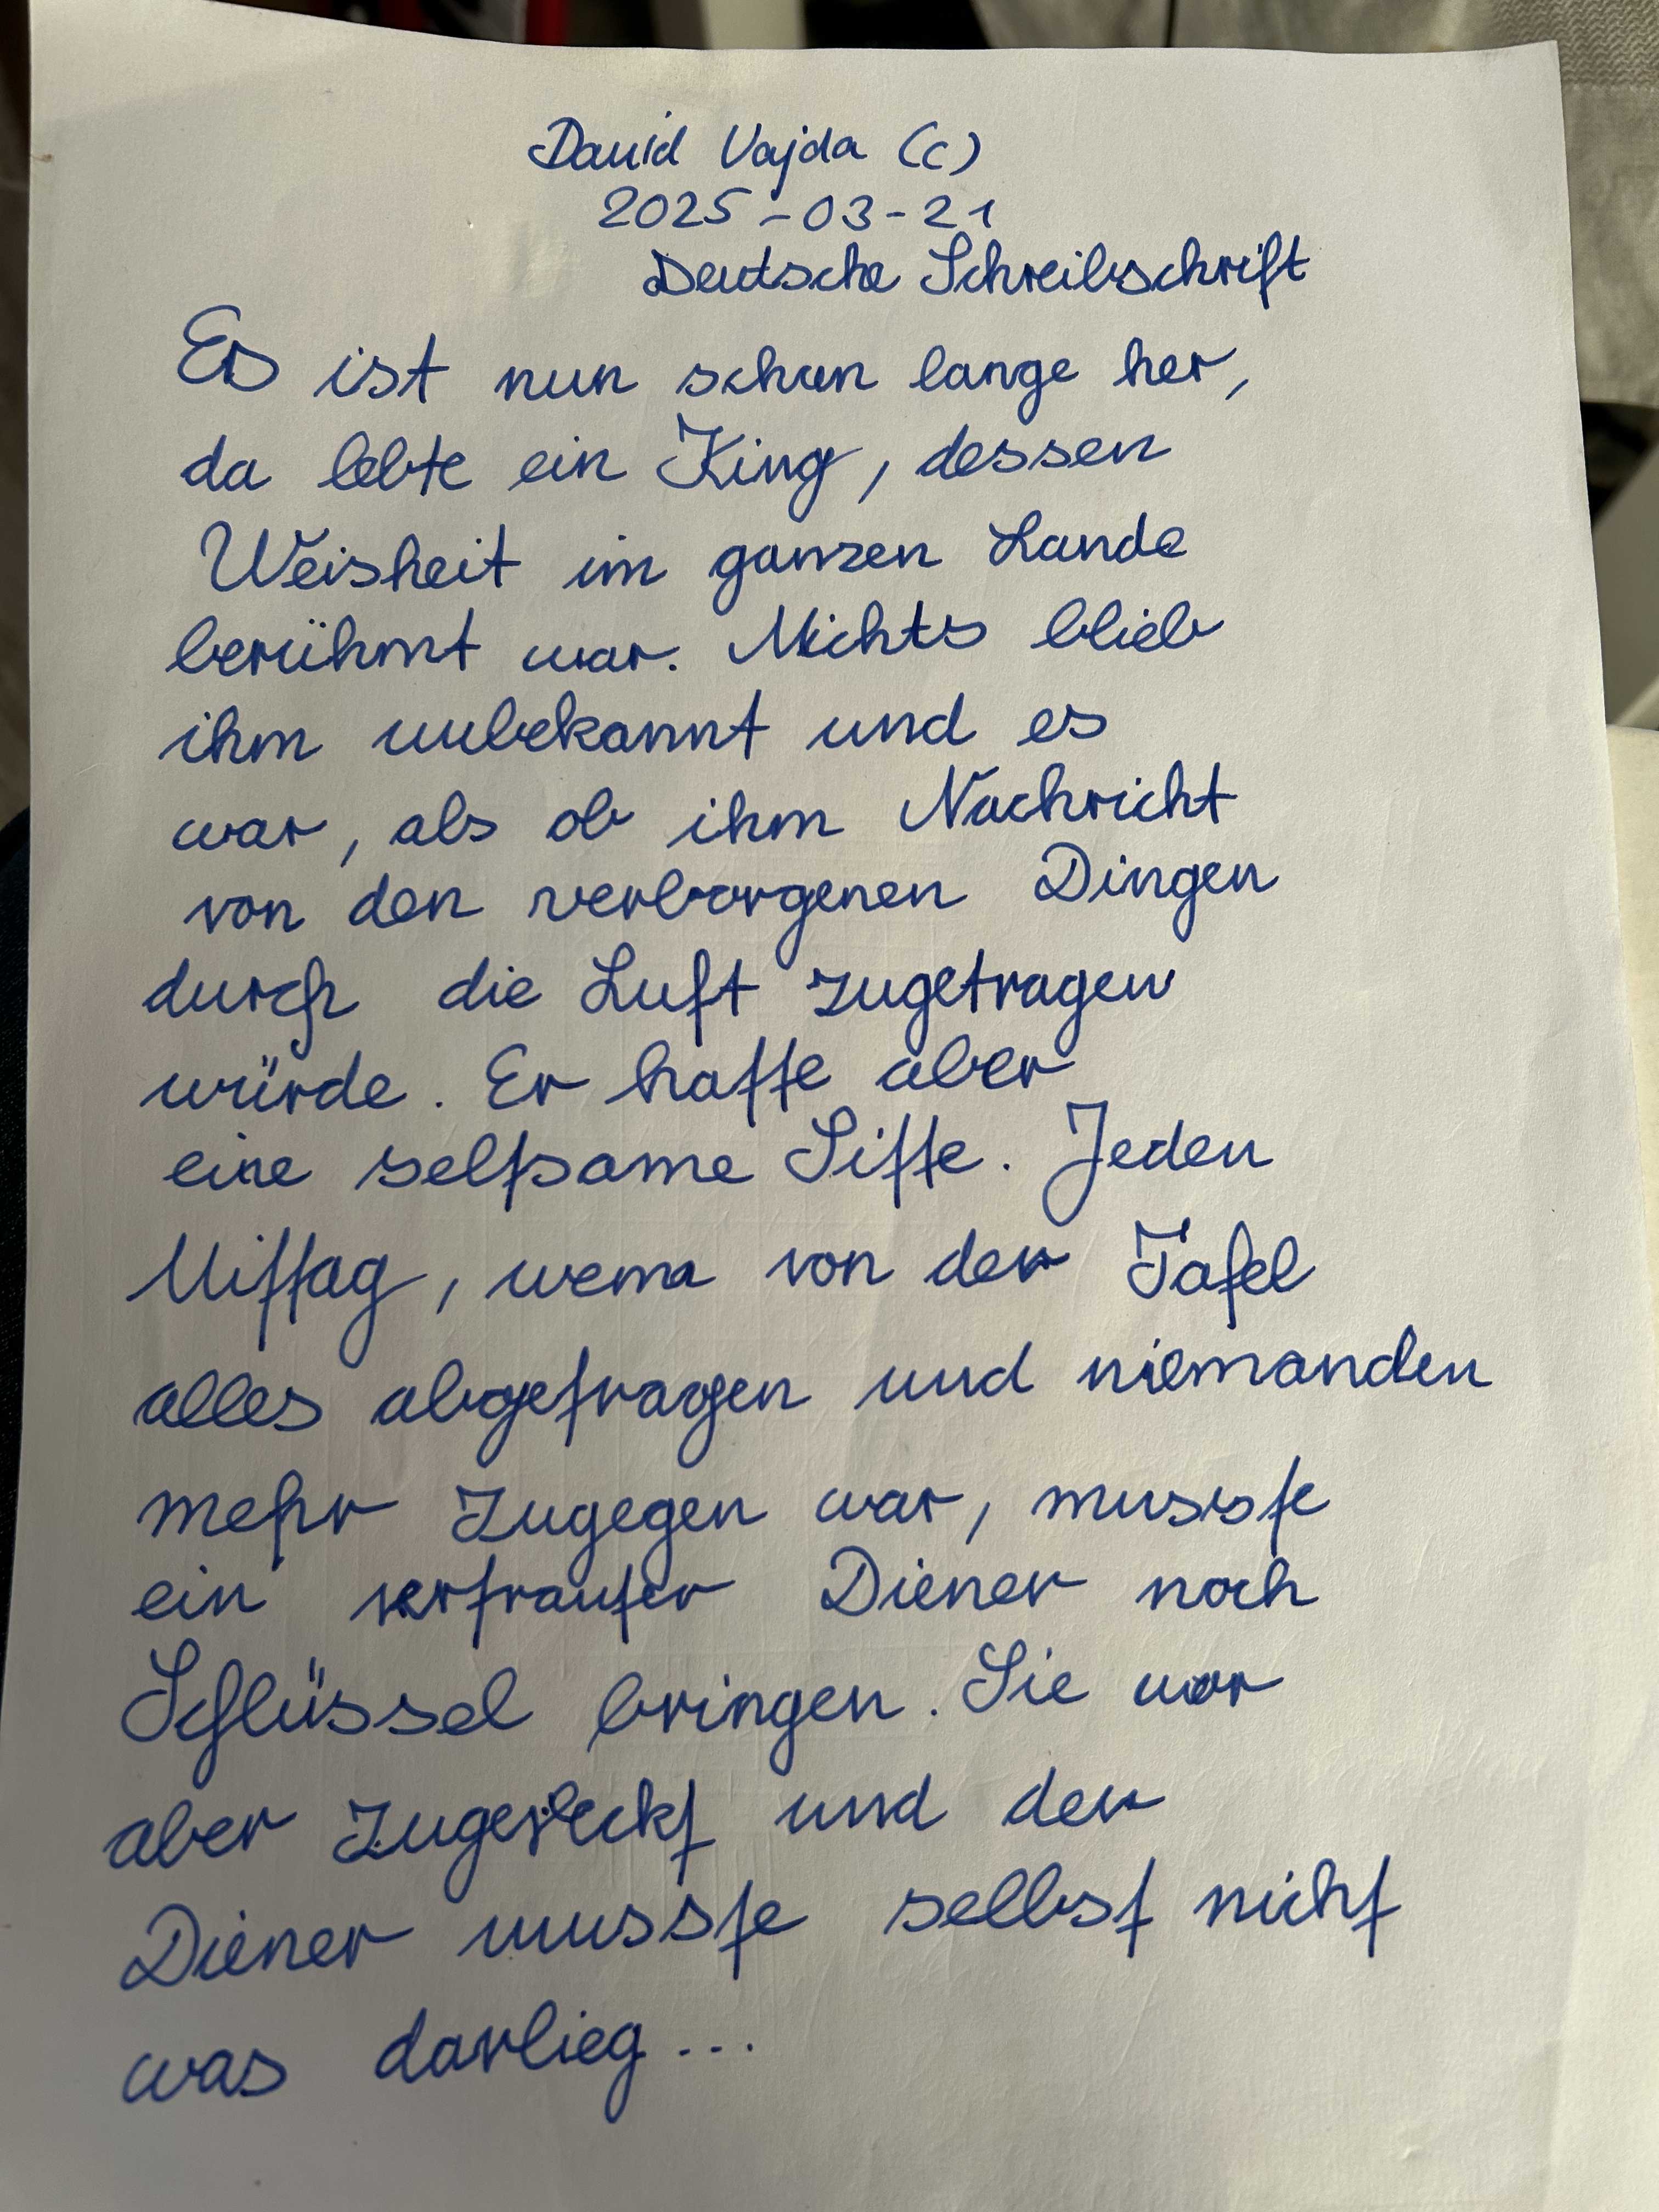 David Vajda (C)
2025-03-21
Deutsche Schreibschrift
Es ist nun schon lange her,
da lebte ein King, dessen
Weisheit im ganzen Lande
berühmt war. Nichts blieb
ihm unbekannt und es
war, als ob ihm Nachricht
von den verborgenen Dingen
durch die Luft zugetragen
würde. Er hatte aber
eine seltsame Sitte. Jeden
Mittag, wenn von der Tafel
alles abgetragen und niemanden
mehr zugegen war, mussste
ein vertrauter Diener noch
Schlüssel bringen. Sie war
aber zugedeckt und der
Diener wusste selbst nicht
was darlieg...